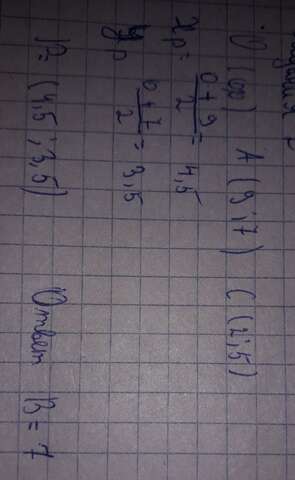 O (0;0) A (9;7) C (2;5)
xp = 0+9/2 = 4,5
yp 0+7/2 = 3,5
= (4,5 ; 3,5) Ответ B = 7